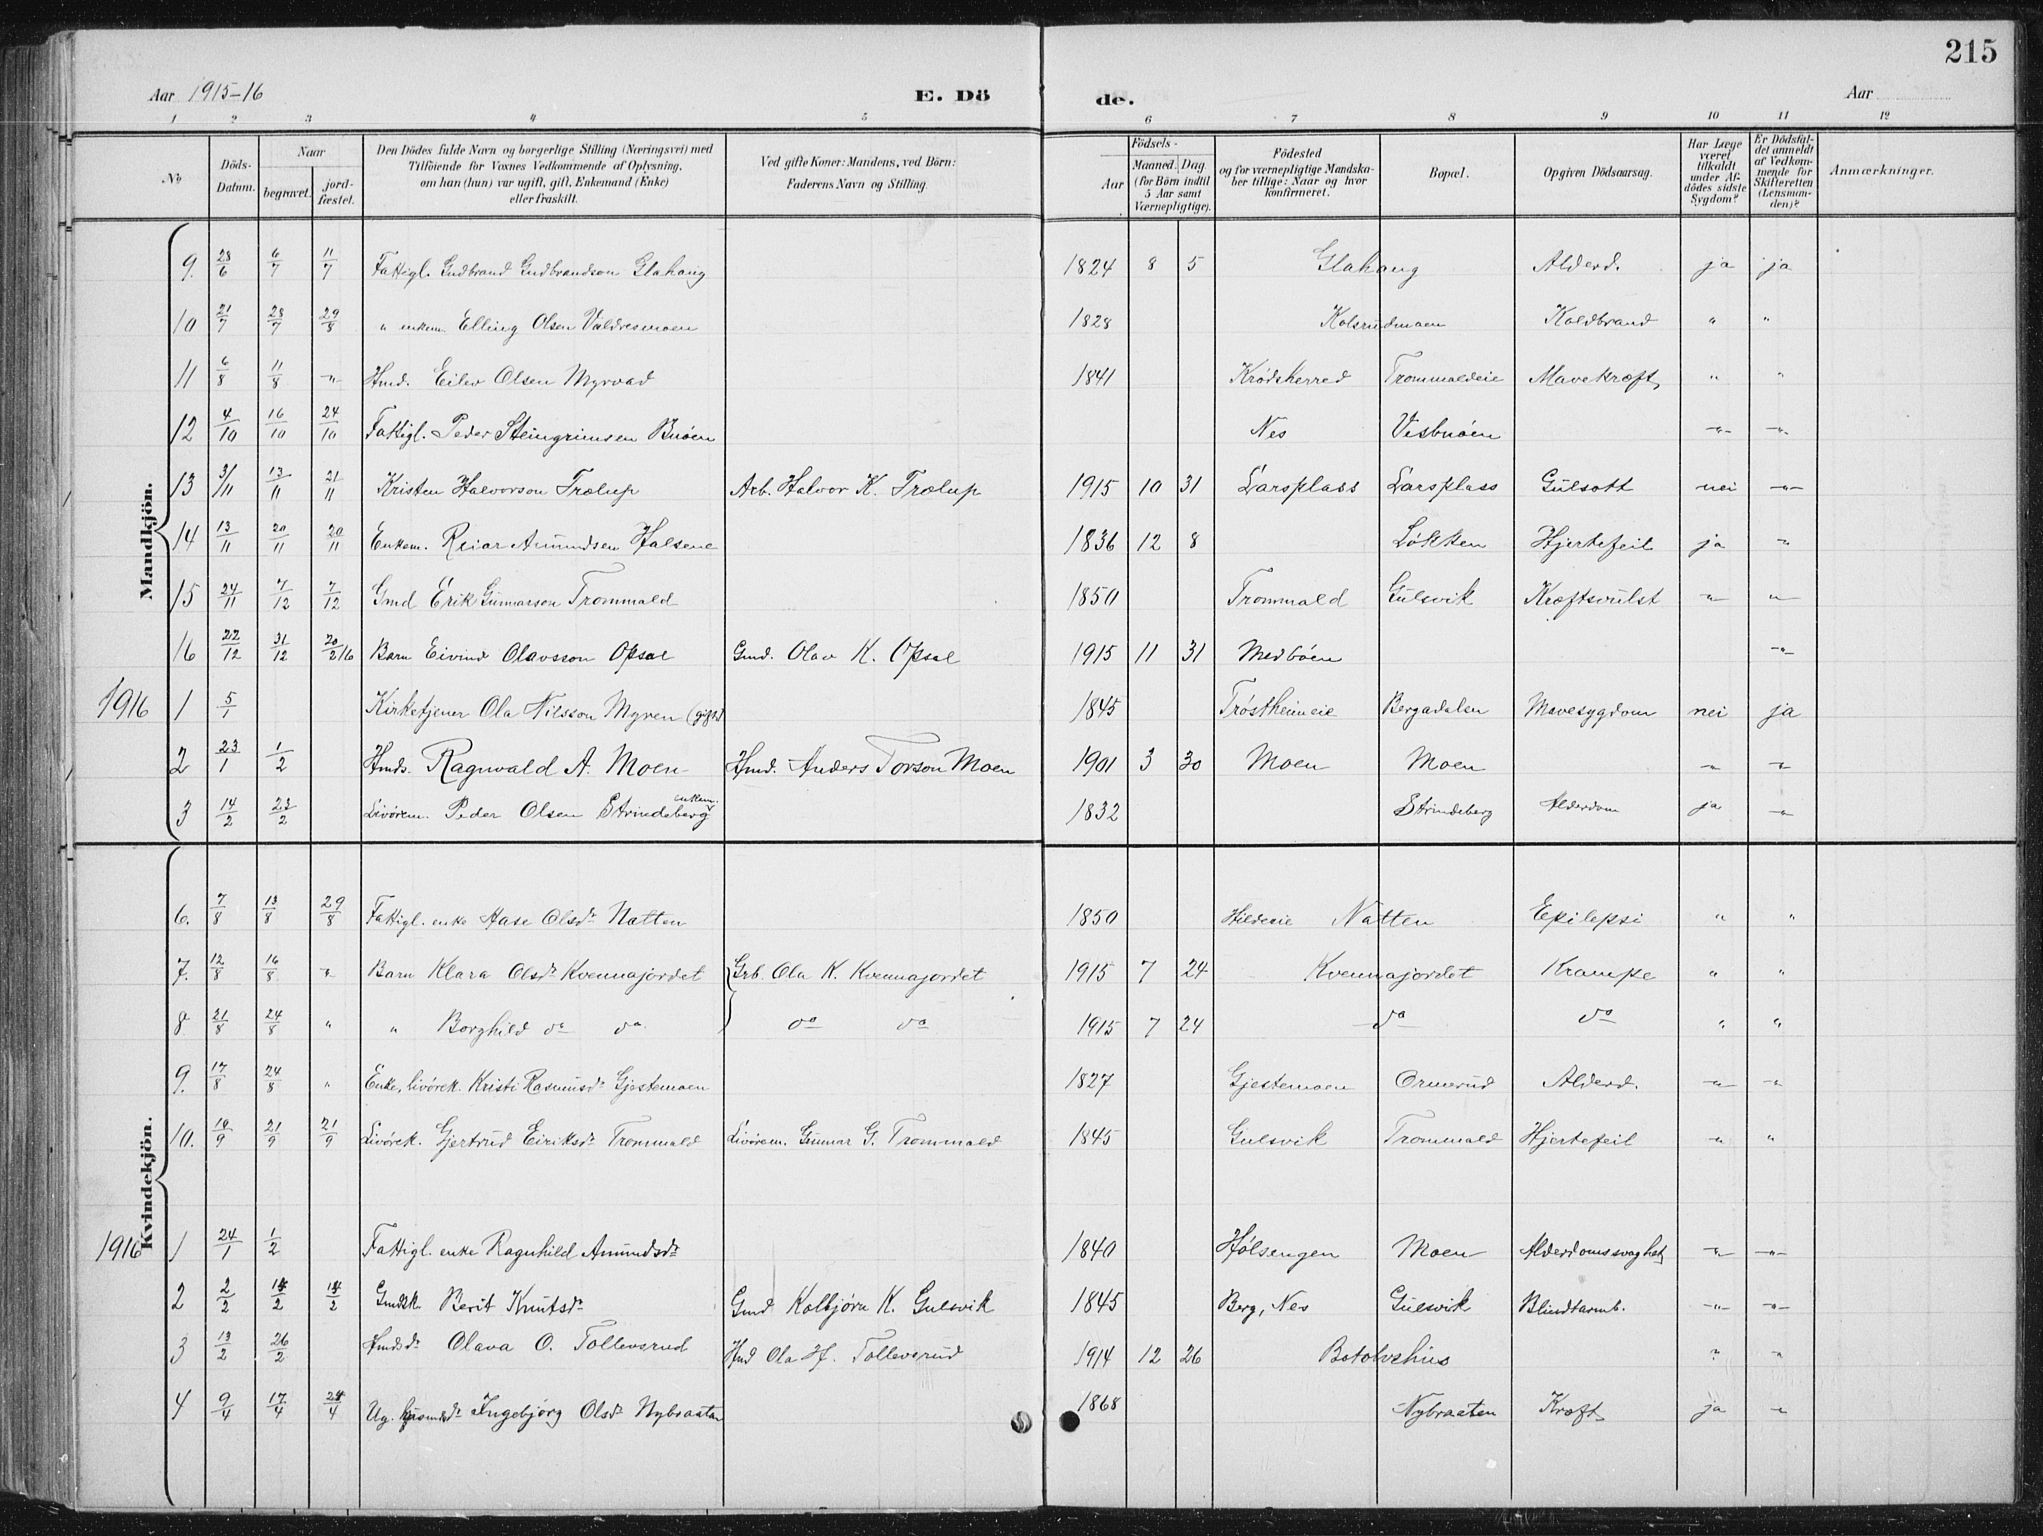 215
Aar 1915-16 E. Dö de. Aar
1 2 3 4 5 6 7 8 9 10 11 12
No Döds-Datum. Naar begravet. jord-fæstet. Den Dödes fulde Navn og borgerlige Stilling (Næringsvei) med Tilföiende for Voxnes Vedkommende af Oplysning, om han (hun) var ugift, gift, Enkemand (Enke) eller fraskilt. Ved gifte Koner: Mandens, ved Börn: Faderens Navn og Stilling. Aar Födsels- Maaned. Dag (for Börn indtil 5 Aar samt Værnepligtige). Födested og for værnepligtige Mandskaber tillige: Naar og hvor konfirmeret. Bopæl. Opgiven Dödsaarsag. Har Læge været tilkaldt under Afdödes sidste Sygdom? Er Dödsfaldet anmeldt af Vedkommende for Skifteretten (Lensmanden)? Anmærkninger.
Mandkjön.
9. 28/6 6/7 11/7 Fattigl. Gudbrand Gudbrandson Glahaug 1824 8 5 Glahaug Alderd. ja ja
10 21/7 28/7 29/8 " enkem. Elling Olsen Valdresmoen 1828 Kolsrudmoen Koldbrand " "
11 6/8 11/8 -"- Hmd. Eilev Olsen Myrvad 1841 Krødsherred Trommaldeie Mavekræft " "
12 4/10 16/10 24/10 Fattigl. Peder Steingrimsen Buøen Nes Visbuøen -"- -"-
13 3/11 13/11 21/11 Kristen Halvorson Trælup Arb. Halvor K. Trælup 1915 10 31 Larsplass Larsplass Gulsott nei -"-
14 13/11 20/11 20/11 Enkem. Reiar Amundsen Halsene 1836 12 8 Løkken Hjertefeil ja "
15 24/11 7/12 7/12 Gmd Erik Gunnarson Trommald 1850 Trommald Gulsvik Kræftsvulst -"- -"-
16 22/12 31/12 20/2 16 Barn Eivind Olavsson Opsal Gmd. Olav K. Opsal 1915 11 31 Medbøen -"-
1916 1 5/1 Kirketjener Ola Nilsson Myren (gift) 1845 Trøstheimeie Bergadalen Mavesygdom nei ja
2 23/1 1/2 Hmds. Ragnvald A. Moen Hmd. Anders Torson Moen 1901 3 30 Moen Moen -"- -"-
3 14/2 23/2 Livørem. Peder Olsen Strindeberg enkem. 1832 Strindeberg Alderdom ja -"-
Kvindekjön.
6. 7/8 13/8 29/8 Fattigl. enke Aase Olsdr Natten 1850 Hildeeie Natten Epilepsi " "
7. 12/8 16/8 -"- Barn Klara Olsdr Kvennajordet Grb. Ola K. Kvennajordet 1915 7 24 Kvennajordet Krampe " "
8 21/8 24/8 " " Borghild do do do do 1915 7 24 do do " "
9. 17/8 24/8 " Enke, livørek. Kristi Rasmusdr Gjestemoen 1827 Gjestemoen Ormerud Alderd. -"- -"-
10. 10/9 21/9 21/9 Livørek. Gjertrud Eiriksdr Trommald Livørem. Gunnar G. Trommald 1845 Gulsvik Trommald Hjertefeil " "
1916 1 24/1 1/2 Fattigl. enke Ragnhild Amundsdr 1840 Hølsengen Moen Alderdomssvaghet -"- -"-
2 2/2 14/2 14/2 Gmdsk. Berit Knutsdr Gmd Kolbjørn K. Gulsvik 1845 Berg, Nes Gulsvik Blindtarmb. -"- -"-
3 13/2 26/2 Hmdsdr Olava O. Tollevsrud Hmd Ola H. Tollevsrud 1914 12 26 Botolvshus " "
4 9/4 17/4 24/4 Ug. Ingebjørg Olsdr Nybraaten 1868 Nybraaten Kræft ja "